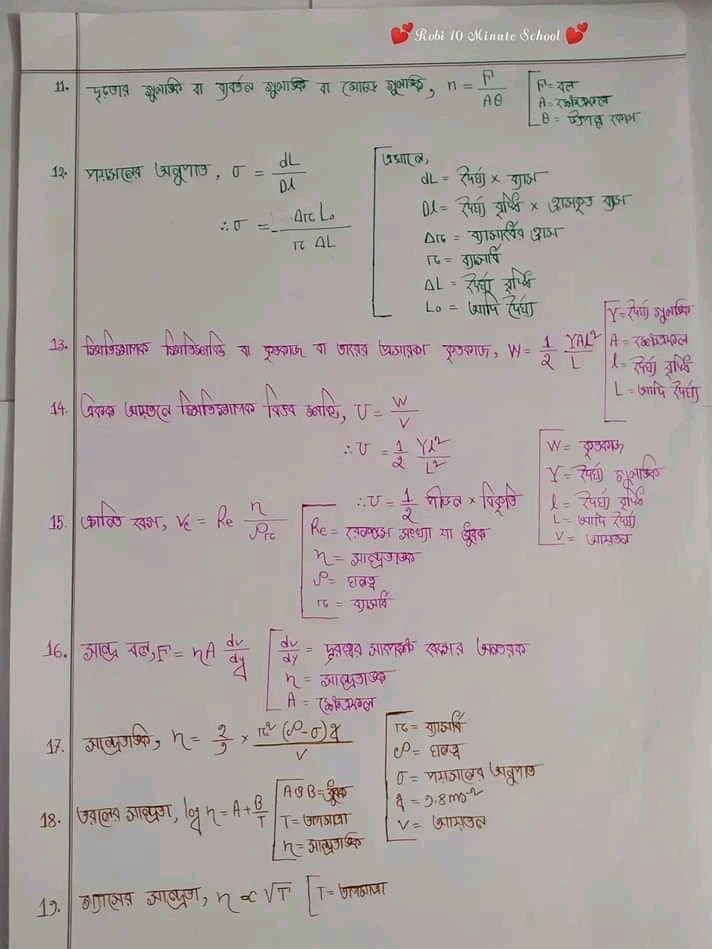 Robi 10 Minute School
11. দৃঢ়তার গুণাঙ্ক বা ব্যবর্তন গুণাঙ্ক বা মোচড় গুণাঙ্ক, n = F/Aθ
F = বল
A = ক্ষেত্রফল
θ = উৎপন্ন কোণ
12. পয়সনের অনুপাত, σ = dL/Dl
∴ σ = - Δr L₀ / r ΔL
এখানে,
dL = দৈর্ঘ্য × ব্যাস
Dl = দৈর্ঘ্য বৃদ্ধি × হ্রাসকৃত ব্যাস
Δr = ব্যাসার্ধের হ্রাস
r = ব্যাসার্ধ
ΔL = দৈর্ঘ্য বৃদ্ধি
L₀ = আদি দৈর্ঘ্য
13. স্থিতিস্থাপক স্থিতিশক্তি বা কৃতকাজ বা তারের প্রসারণে কৃতকাজ, W = 1/2 YAl²/L
Y = দৈর্ঘ্য গুণাঙ্ক
A = ক্ষেত্রফল
l = দৈর্ঘ্য বৃদ্ধি
L = আদি দৈর্ঘ্য
14. একক আয়তনে স্থিতিস্থাপক বিভব শক্তি, U = W/V
∴ U = 1/2 Yl²/L²
∴ U = 1/2 পীড়ন × বিকৃতি
W = কৃতকাজ
Y = দৈর্ঘ্য গুণাঙ্ক
l = দৈর্ঘ্য বৃদ্ধি
L = আদি দৈর্ঘ্য
V = আয়তন
15. ক্রান্তি বেগ, Vc = Re η/ρr
Re = রেনল্ডস সংখ্যা বা ধ্রুবক
η = সান্দ্রতাঙ্ক
ρ = ঘনত্ব
r = ব্যাসার্ধ
16. সান্দ্র বল, F = ηA dv/dy
dv/dy = দূরত্বের সাপেক্ষে বেগের অন্তরক
η = সান্দ্রতাঙ্ক
A = ক্ষেত্রফল
17. সান্দ্রতাঙ্ক, η = 2/9 × r²(ρ-σ)g/V
r = ব্যাসার্ধ
ρ = ঘনত্ব
σ = পয়সনের অনুপাত
g = 9.8ms⁻²
V = আয়তন
18. তরলের সান্দ্রতা, log η = A + B/T
A ও B = ধ্রুবক
T = তাপমাত্রা
η = সান্দ্রতাঙ্ক
19. গ্যাসের সান্দ্রতা, η ∝ √T [T = তাপমাত্রা